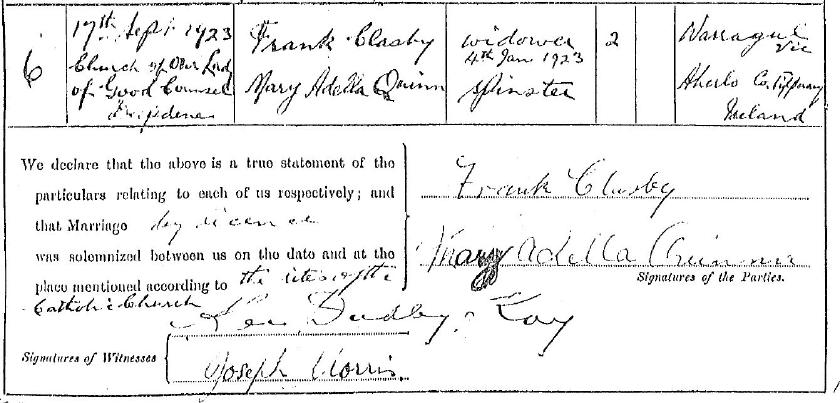 6
17th Sept 1923
Church of Our Lady
of Good Counsel
Deepdene
Frank Clasby
Mary Adella Quinn
widower
4th Jan 1923
spinster
2
Warragul
Vic
Aherlo Co. Tipperary
Ireland
We declare that the above is a true statement of the
particulars relating to each of us respectively; and
that Marriage by licence
was solemnized between us on the date and at the
place mentioned according to the rites of the
Catholic Church
Frank Clasby
Mary Adella Quinn
Signatures of the Parties.
Signatures of Witnesses
Dudley Kay
Joseph Norris